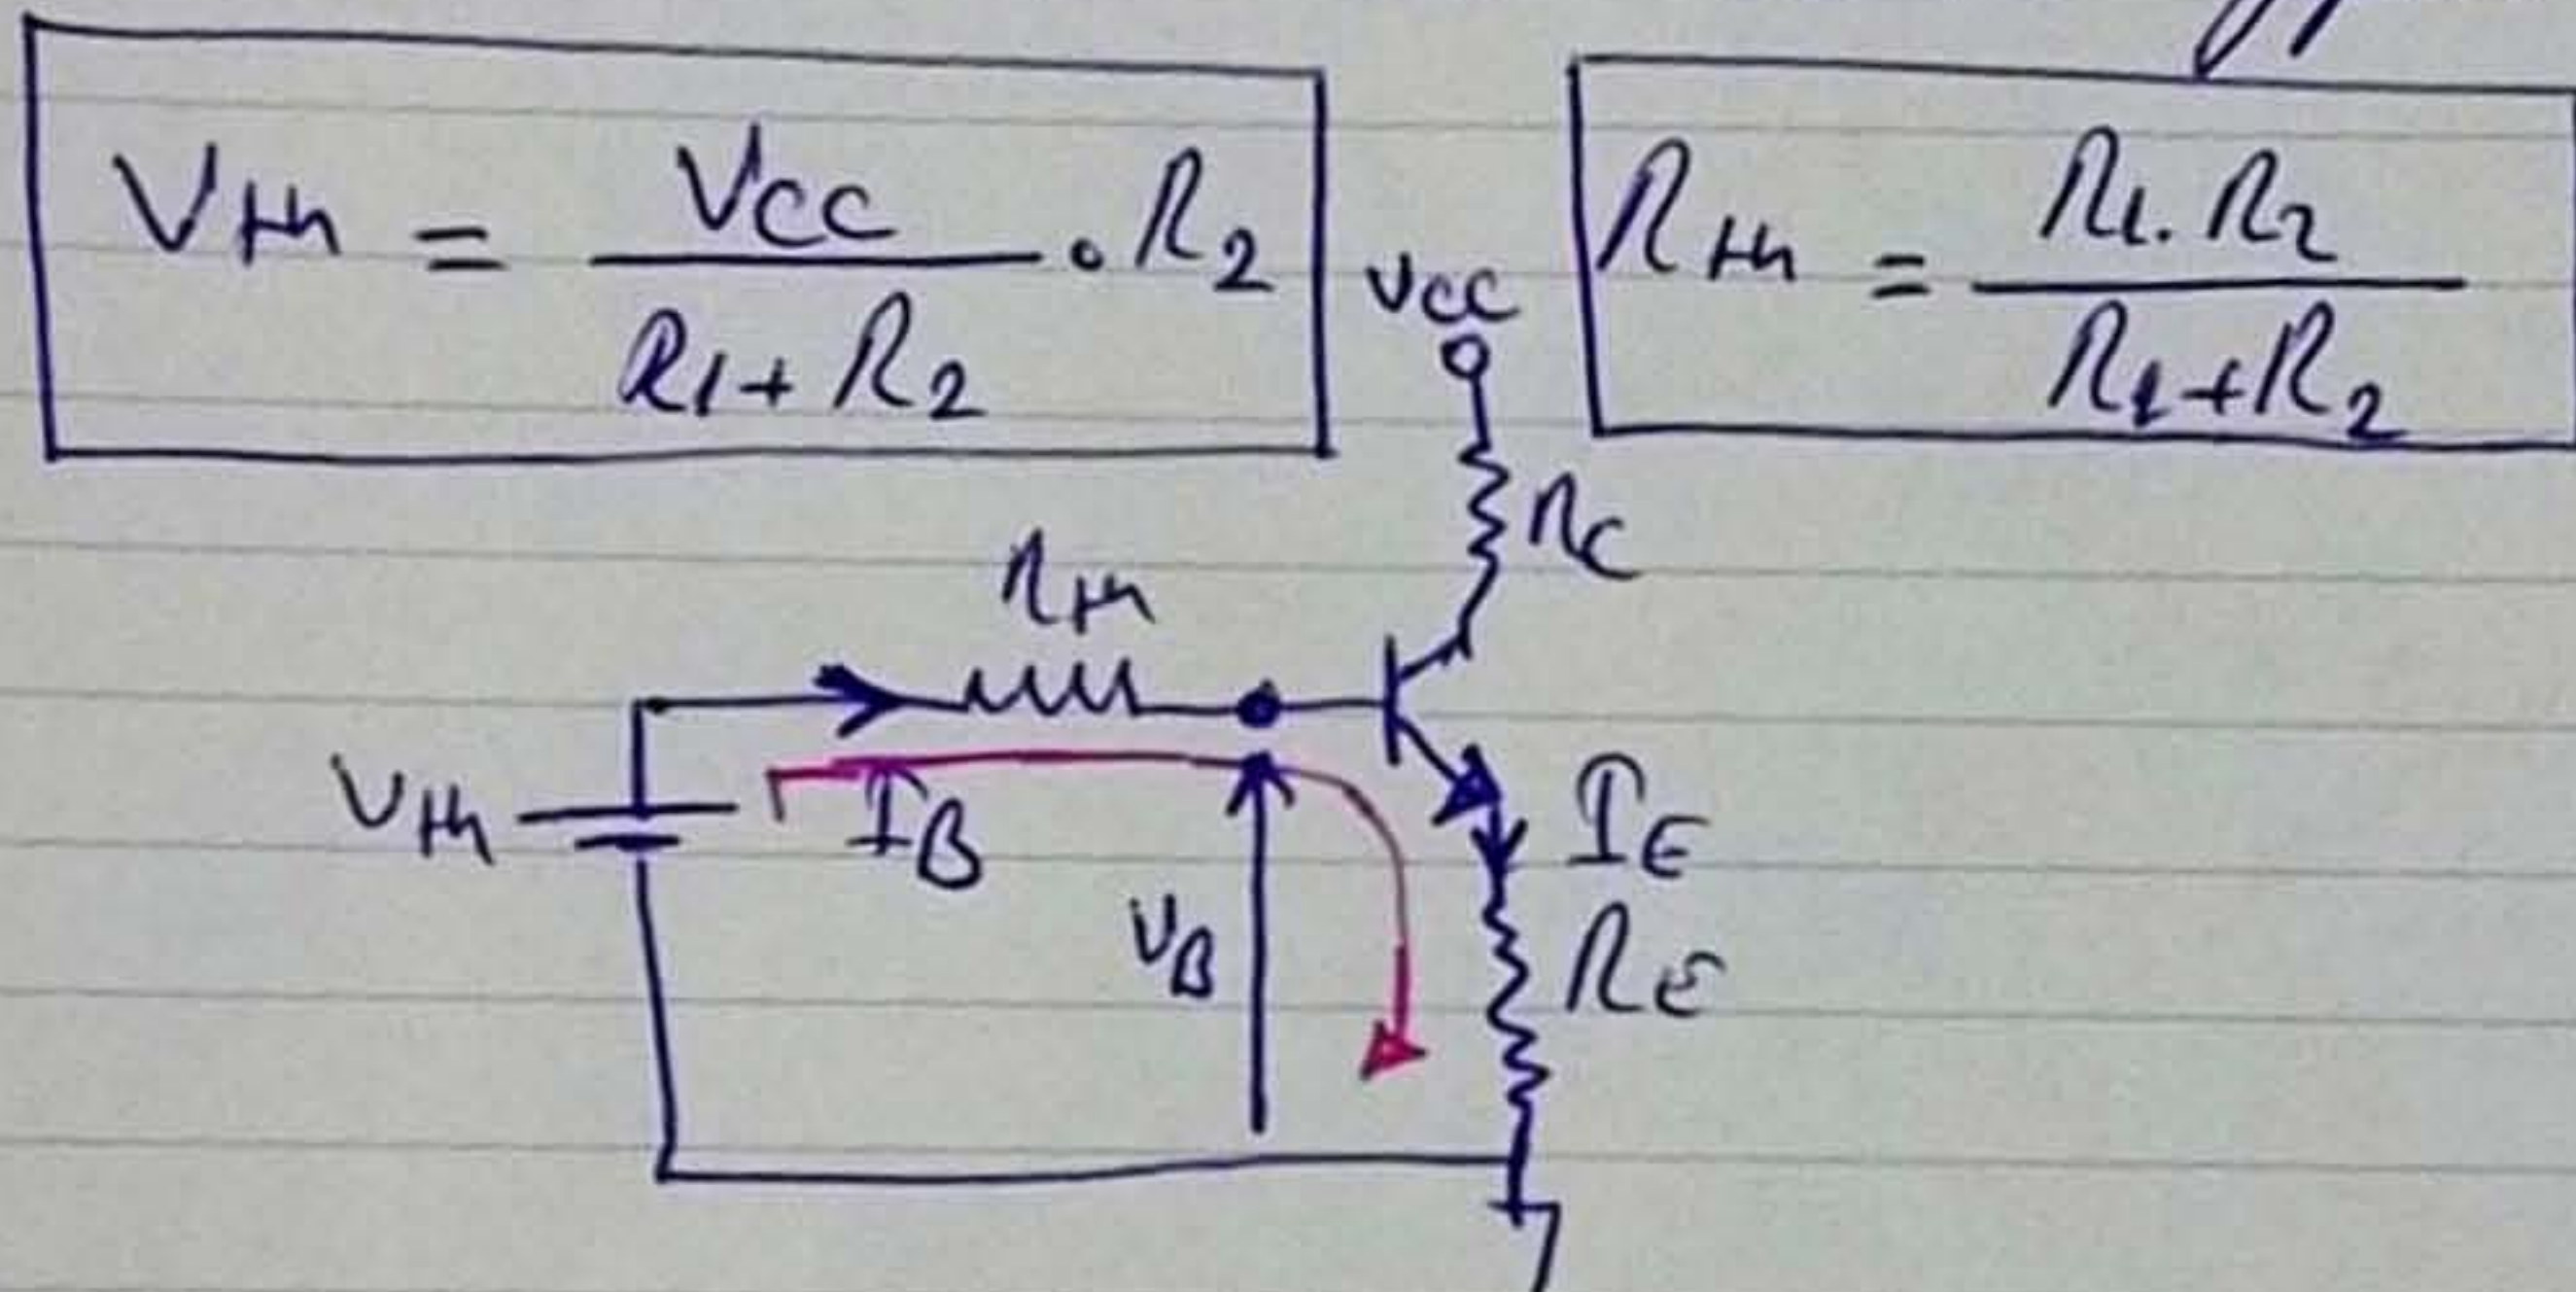 VTH = VCC / R1 + R2 . R2
RTH = R1 . R2 / R1 + R2
VCC
RC
RTH
VTH
IB
VB
IE
RE